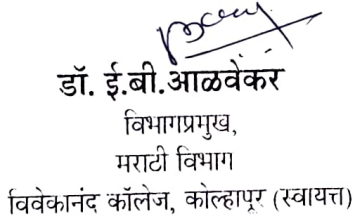 डॉ. ई.बी.आळवेकर
विभागप्रमुख,
मराठी विभाग
विवेकानंद कॉलेज, कोल्हापूर (स्वायत्त)